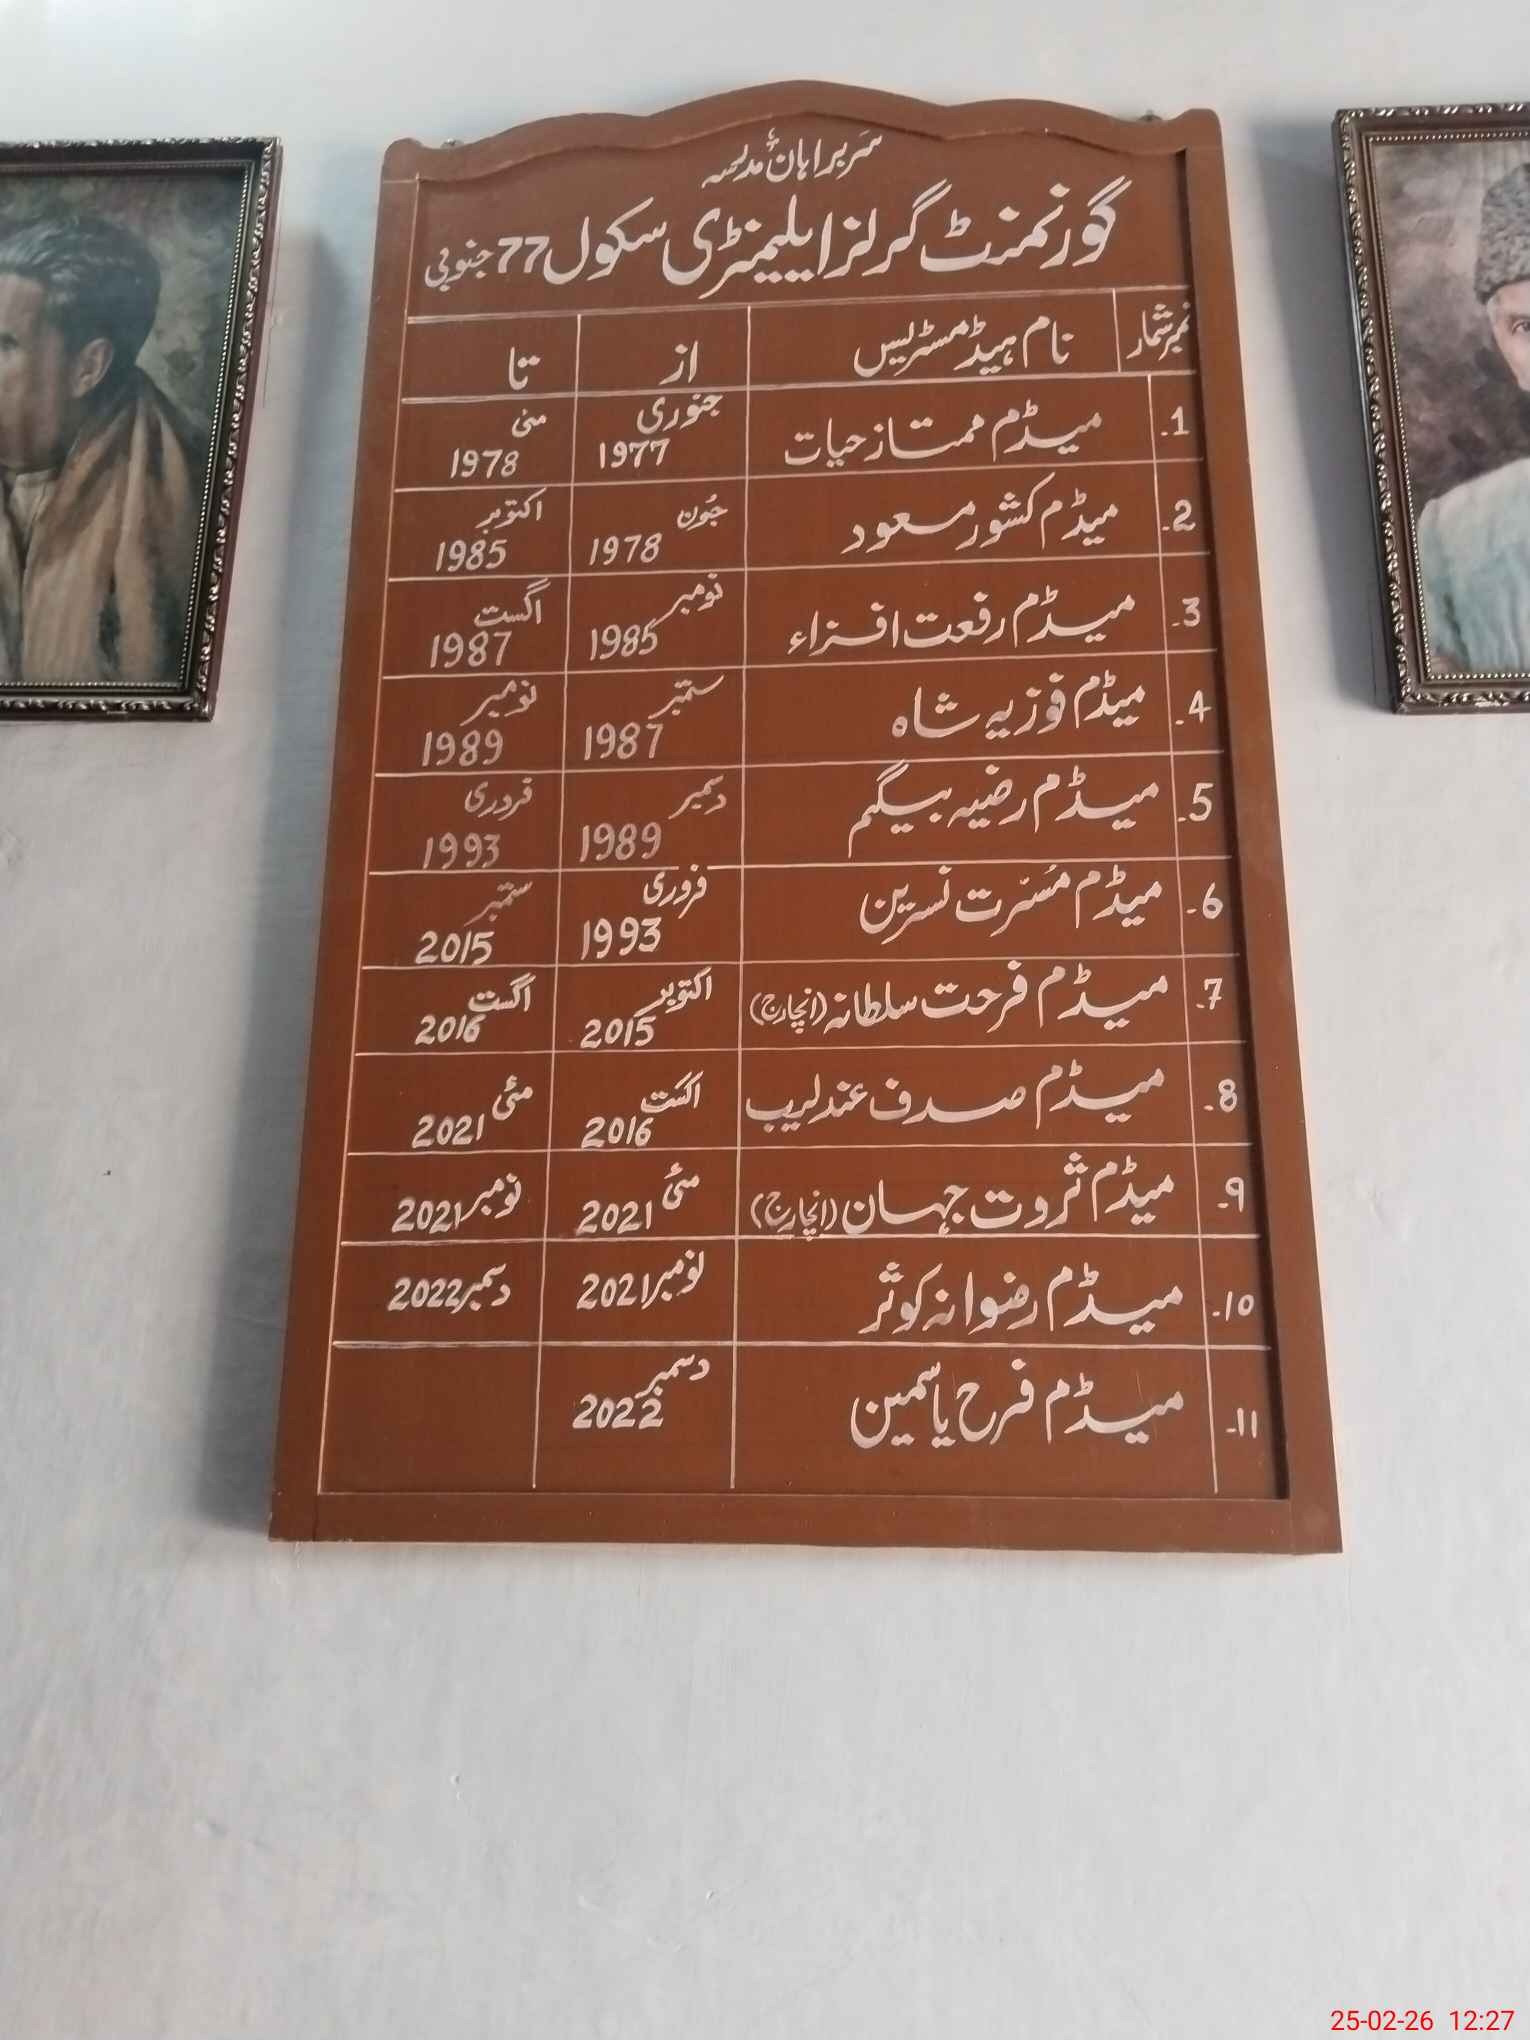 سربراہانِ مدرسہ
گورنمنٹ گرلز ایلیمنٹری سکول 77 جنوبی
نمبر شمار نام ہیڈ مسٹریس از تا
1- میڈم ممتاز حیات جنوری 1977 مئی 1978
2- میڈم کشور مسعود جُون 1978 اکتوبر 1985
3- میڈم رفعت افزاء نومبر 1985 اگست 1987
4- میڈم فوزیہ شاہ ستمبر 1987 نومبر 1989
5- میڈم رضیہ بیگم دسمبر 1989 فروری 1993
6- میڈم مُسرّت نسرین فروری 1993 ستمبر 2015
7- میڈم فرحت سلطانہ (انچارج) اکتوبر 2015 اگست 2016
8- میڈم صدف عندلیب اگست 2016 مئی 2021
9- میڈم ثروت جہان (انچارج) مئی 2021 نومبر 2021
10- میڈم رضوانہ کوثر نومبر 2021 دسمبر 2022
11- میڈم فرح یاسمین دسمبر 2022
25-02-26 12:27